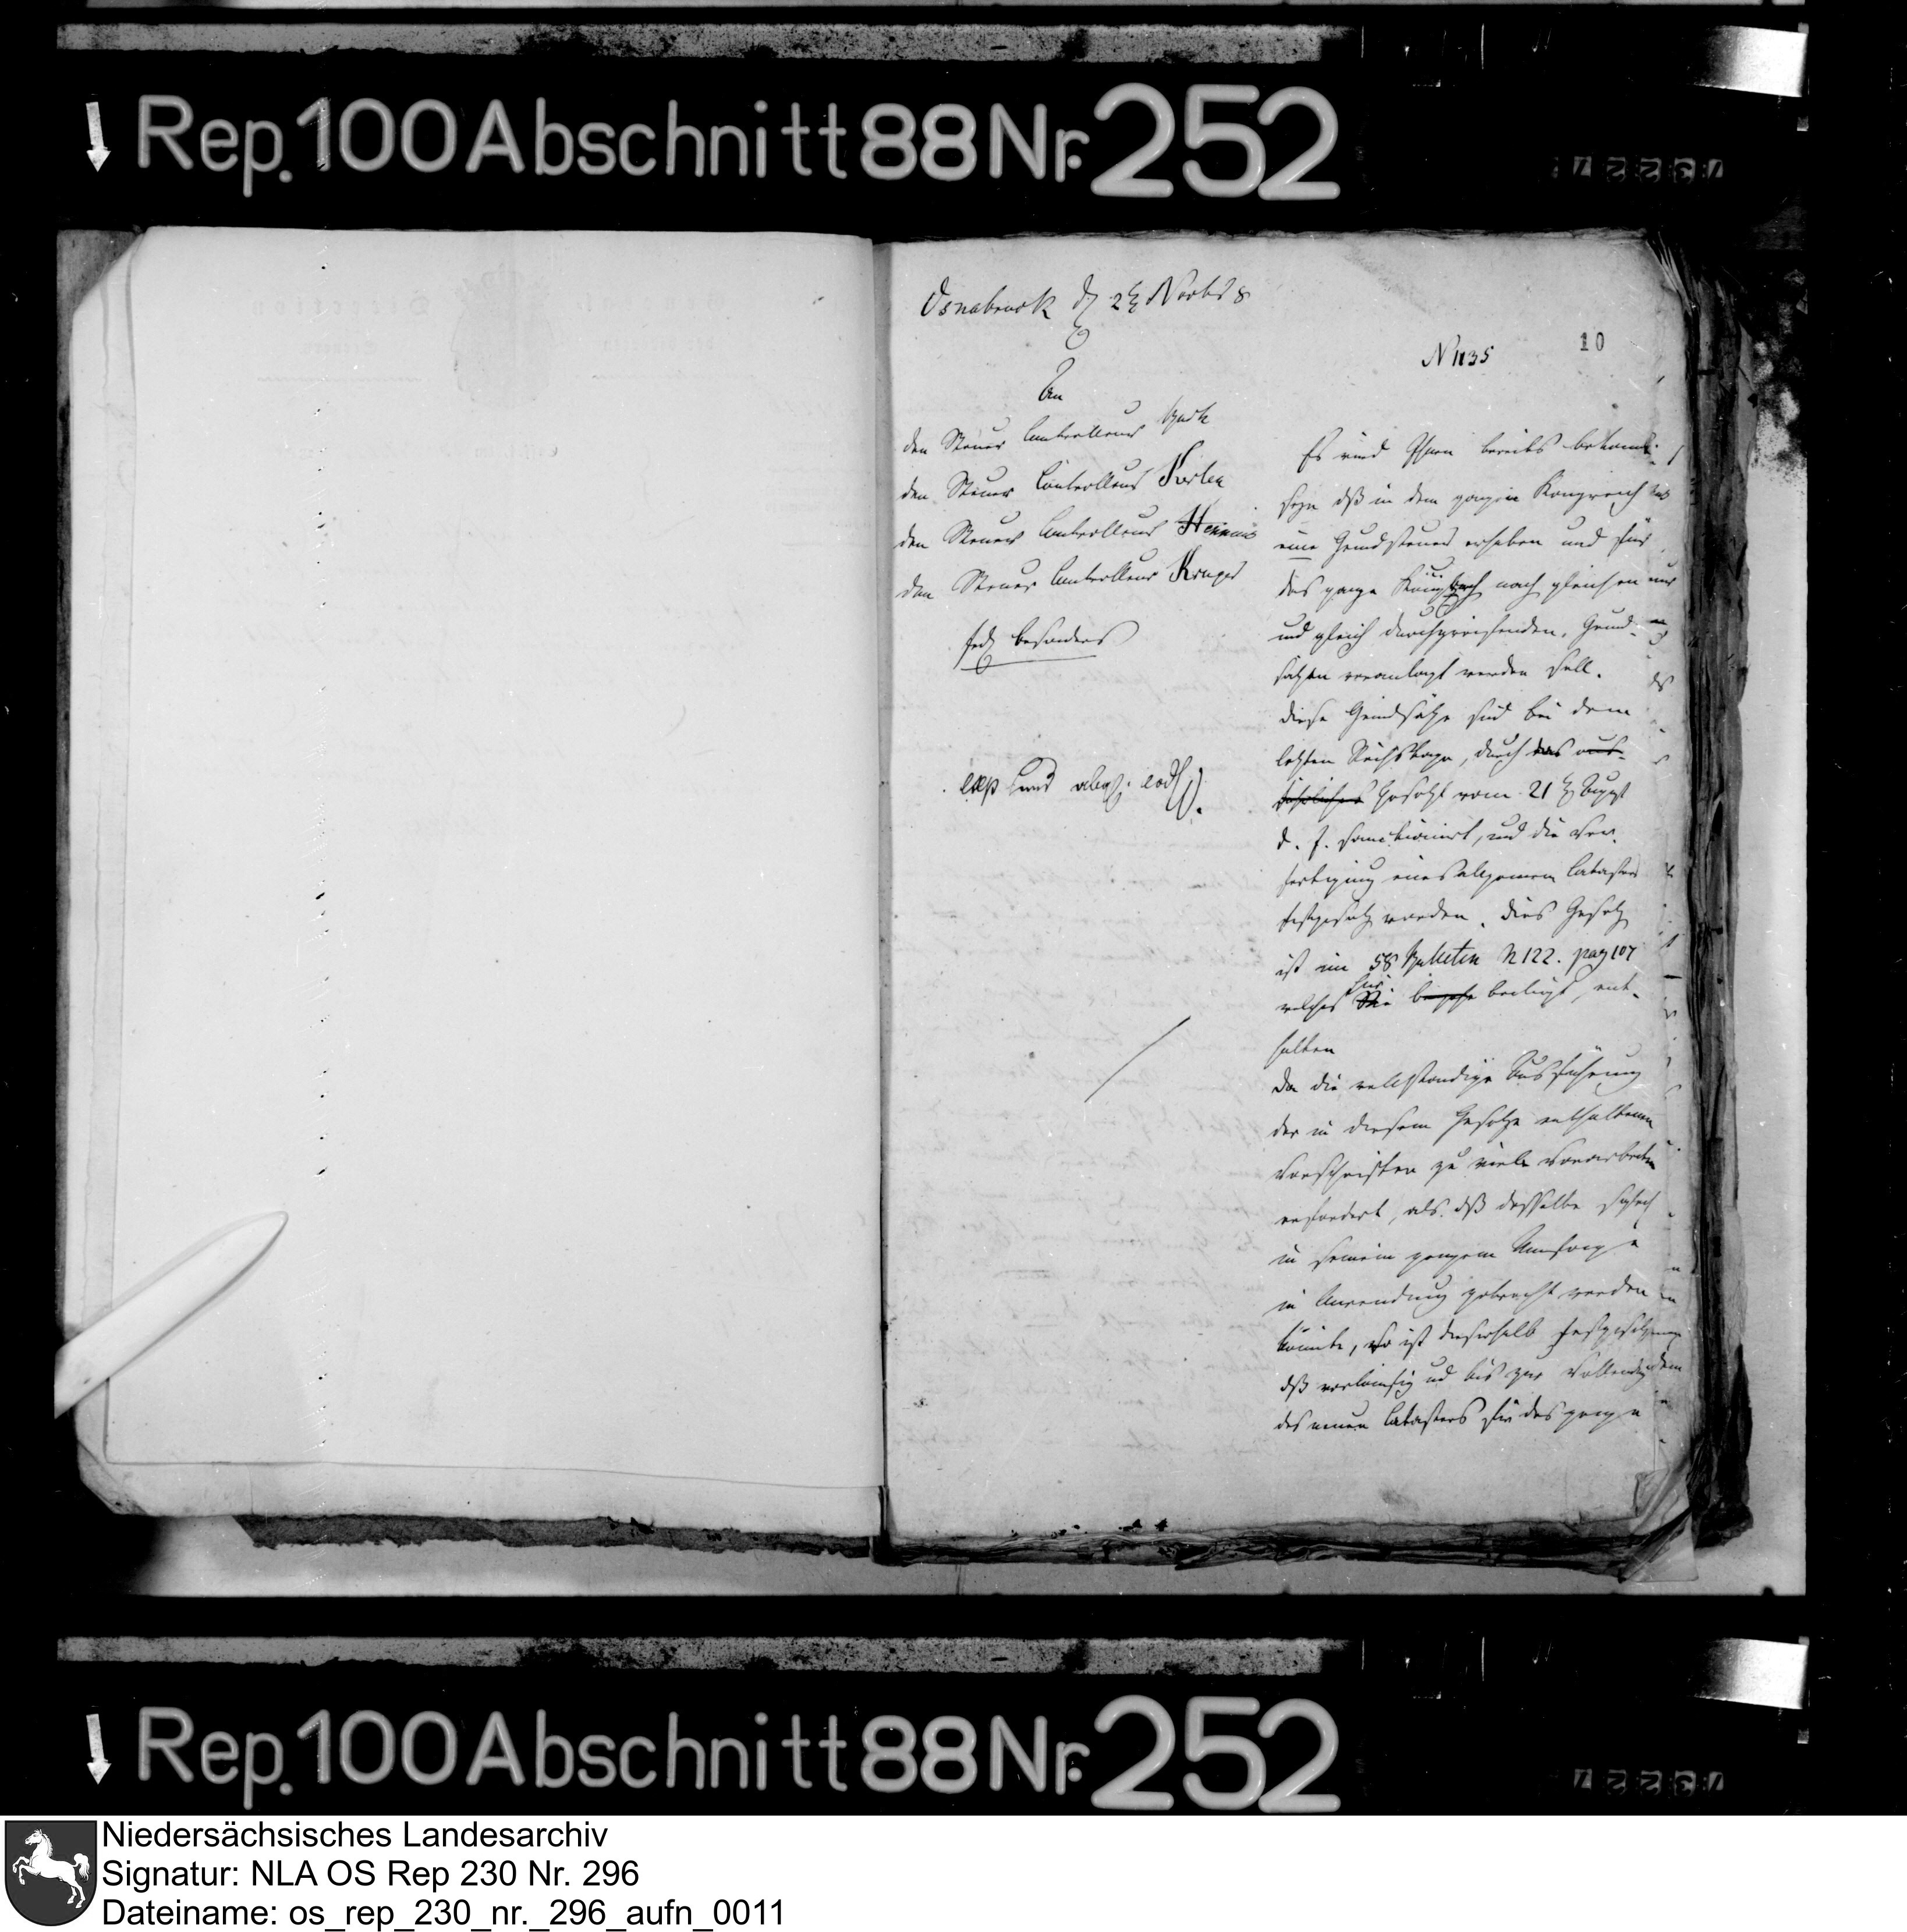 Rep. 100 Abschnitt 88 Nr. 252
Osnabrück d. 2t Novbr 8
10
N 1135
An
den Steuer Controlleur
den Steuer Controlleur Kerten
den Steuer Controlleur
den Steuer Controlleur Kruger
jeder besonders
Es wird Ihnen bereits bekannt
seyn dß in dem ganzen Königreich nur
eine Grundsteuer erhoben und für
das ganze Königreich nach gleichen
und gleich durchgreifenden, Grund-
sätzen veranlagt werden soll.
diese Grundsätze sind bei dem
letzten Reichstage, durch das aus-
Gesetz vom 21t August
d. J. sanctionirt, und die Ver-
fertigung eines allgemeinen Catasters
festgesetzt worden. dies Gesetz
ist im 58 Bulletin N 122. pag 107
welches hier beiliegt, ent-
halten
Da die vollständige Ausführung
der in diesem Gesetze enthaltenen
Vorschriften zu viele Vorarbeiten
erfordert, als dß dasselbe sogleich
in seinem ganzen Umfange
in Anwendung gebracht werden
könnte, so ist dieserhalb festgesetzt
dß vorläufig und bis zur Vollendung
des neuen Catasters für das ganze
Rep. 100 Abschnitt 88 Nr. 252
Niedersächsisches Landesarchiv
Signatur: NLA OS Rep 230 Nr. 296
Dateiname: os_rep_230_nr._296_aufn_0011